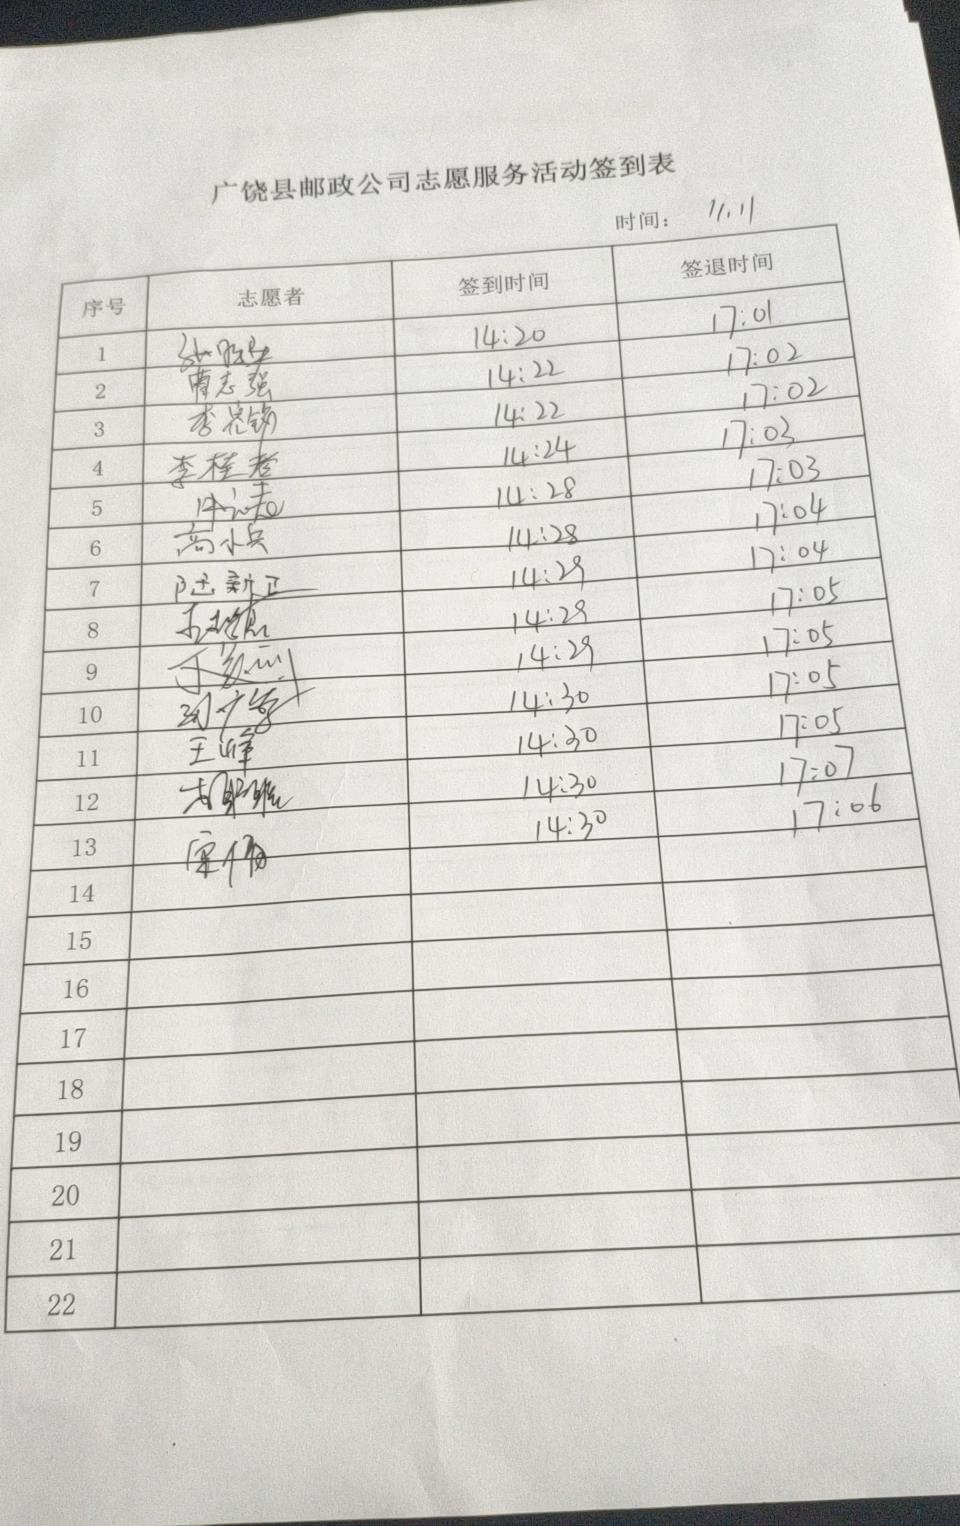 广饶县邮政公司志愿服务活动签到表
时间： 11.11
序号 志愿者 签到时间 签退时间
1 14:20 17:01
2 曹志强 14:22 17:02
3 李 14:22 17:02
4 李桂 14:24 17:03
5 14:28 17:03
6 高小兵 14:28 17:04
7 陆新正 14:29 17:04
8 14:29 17:05
9 14:29 17:05
10 14:30 17:05
11 王峰 14:30 17:05
12 14:30 17:07
13 宋伟 14:30 17:06
14
15
16
17
18
19
20
21
22